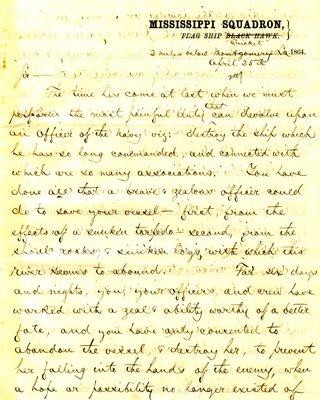 MISSISSIPPI SQUADRON,
FLAG SHIP BLACK HAWK.
Cricket
3 miles below Montgomery La 1864.
April 25th
The time has come at last when we must
perform the most painful duty that can devolve upon
an Officer of the Navy viz: destroy the ship which
he has so long commanded, and connected with
which are so many associations. You have
done all that a brave & zealous officer could
do to save your vessel — first, from the
effects of a sunken torpedo — second, from the
shoal rocks & sunken logs with which this
river seems to abound. For six days
and nights, you, your officers, and crew have
worked with a zeal & ability worthy of a better
fate, and you have only consented to
abandon the vessel, & destroy her, to prevent
her falling into the hands of the enemy, when
a hope or possibility no longer existed of